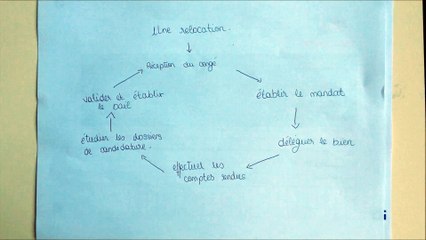 Une relocation.
Réception du congé
établir le mandat
déléguer le bien
effectuer les
comptes rendus
étudier les dossiers
de candidature.
valider et établir
le bail
i